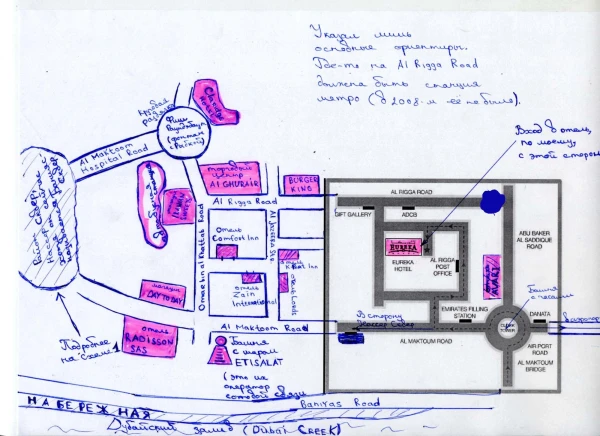 Указал лишь
основные ориентиры.
Где-то на Al Rigga Road
должна быть станция
метро (в 2008-м её не было).
Вход в отель,
по моему,
с этой стороны
Claridge
Hotel
Al Maktoom
Hospital Road
Фиш
Раундэбаут
(фонтан
с рыбкой)
торговый
центр
AL GHURAIR
BURGER
KING
Al Rigga Road
отель
Comfort Inn
Omar bin al Khattab Road
Al Jazeira Str
отель
Zain
International
отель Landa
магазин
DAY TO DAY
Al Maktoom Road
отель
RADISSON
SAS
Башня
с шаром
ETISALAT
(это их
оператор
сотовой связи)
Подробнее
на Схеме 1
Baniyas Road
НАБЕРЕЖНАЯ
Дубайский залив (Dubai CREEK)
AL RIGGA ROAD
GIFT GALLERY
ADCB
ABU BAKER
AL SADDIQUE
ROAD
EUREKA
EUREKA
HOTEL
AL RIGGA
POST
OFFICE
отель
Башня
с часами
В сторону
EMIRATES FILLING
STATION
CLOCK
TOWER
DANATA
AL MAKTOUM ROAD
AIRPORT
ROAD
AL MAKTOUM
BRIDGE